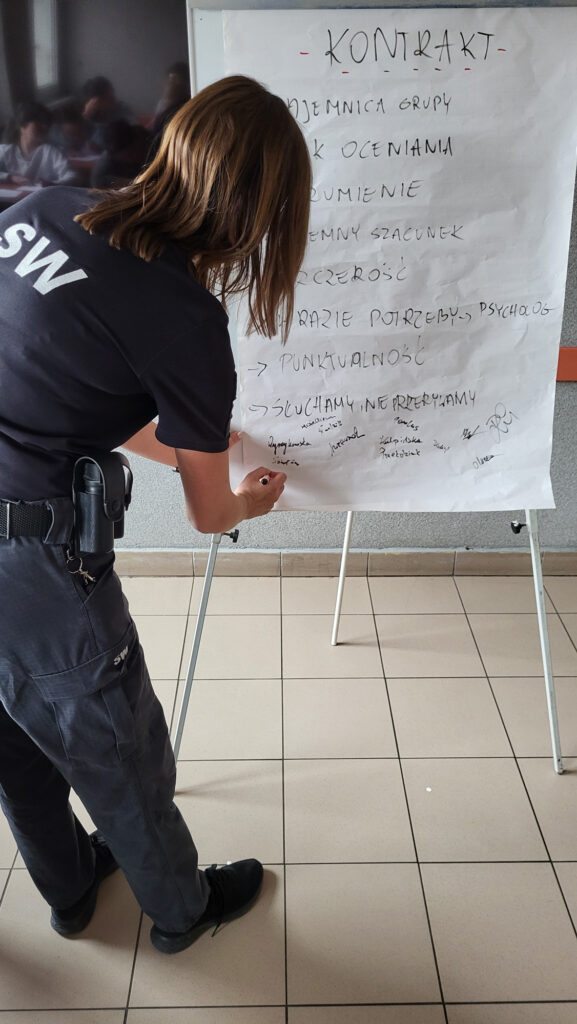 - KONTRAKT -
AJEMNICA GRUPY
K OCENIANIA
ZUMIENIE
EMNY SZACUNEK
ZCZEROŚĆ
RAZIE POTRZEBY → PSYCHOLOG
→ PUNKTUALNOŚĆ
→ SŁUCHAMY, NIE PRZERYWAMY
SW
SW